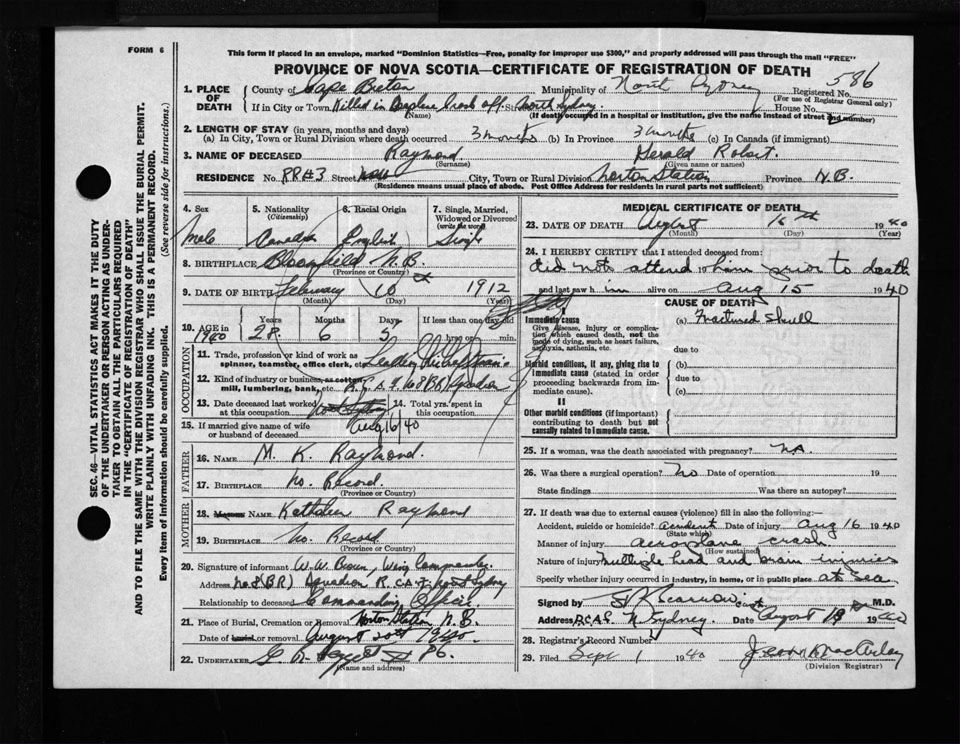 FORM 6
This form if placed in an envelope, marked "Dominion Statistics—Free, penalty for improper use $300," and properly addressed will pass through the mail "FREE"
PROVINCE OF NOVA SCOTIA—CERTIFICATE OF REGISTRATION OF DEATH
586
1. PLACE OF DEATH County of Cape Breton Municipality of North Sydney Registered No.
(For use of Registrar General only)
If in City or Town Killed in off Street North Sydney House No.
(Name) (If death occurred in a hospital or institution, give the name instead of street and number)
2. LENGTH OF STAY (in years, months and days)
(a) In City, Town or Rural Division where death occurred 3 months (b) In Province 3 months (c) In Canada (if immigrant)
3. NAME OF DECEASED Raymond Gerald Robert.
(Surname) (Given name or names)
RESIDENCE No. RR#3 Street City, Town or Rural Division Norton Station Province N.B.
(Residence means usual place of abode. Post Office Address for residents in rural parts not sufficient)
4. Sex Male
5. Nationality (Citizenship) Canadian
6. Racial Origin English
7. Single, Married, Widowed or Divorced (write the word) Single
8. BIRTHPLACE Bloomfield N.B.
(Province or Country)
9. DATE OF BIRTH February 10 1912
(Month) (Day) (Year)
10. AGE in 1940 Years 28 Months 6 Days 5 If less than one day old
hrs. min.
OCCUPATION
11. Trade, profession or kind of work as spinner, teamster, office clerk, etc.
12. Kind of industry or business, as cotton mill, lumbering, bank, etc.
13. Date deceased last worked at this occupation Aug 16/40
14. Total yrs. spent in this occupation
15. If married give name of wife or husband of deceased
FATHER
16. NAME M. K. Raymond.
17. BIRTHPLACE No. Record.
(Province or Country)
MOTHER
18. Maiden NAME Kathleen Raymond
19. BIRTHPLACE No. Record
(Province or Country)
20. Signature of informant W. W. Brown, Wing Commander
Address No. 8 (BR) Squadron R.C.A.F. North Sydney
Relationship to deceased Commanding Officer.
21. Place of Burial, Cremation or Removal Norton Station N.B.
Date of burial or removal August 20th 1940.
22. UNDERTAKER
(Name and address)
MEDICAL CERTIFICATE OF DEATH
23. DATE OF DEATH August 16th 1940
(Month) (Day) (Year)
24. I HEREBY CERTIFY that I attended deceased from:
did not attend him prior to death
and last saw him alive on Aug 15 1940
CAUSE OF DEATH
I
Immediate cause (a) Fractured Skull
Give disease, injury or complication which caused death, not the mode of dying, such as heart failure, asphyxia, asthenia, etc.
due to
Morbid conditions, if any, giving rise to immediate cause (stated in order proceeding backwards from immediate cause).
(b)
due to
(c)
II
Other morbid conditions (if important) contributing to death but not causally related to immediate cause.
25. If a woman, was the death associated with pregnancy? NA.
26. Was there a surgical operation? No Date of operation 19
State findings Was there an autopsy?
27. If death was due to external causes (violence) fill in also the following:—
Accident, suicide or homicide? Accident Date of injury Aug 16 1940
(State which)
Manner of injury aeroplane crash
(How sustained)
Nature of injury Multiple head and brain injuries
Specify whether injury occurred in industry, in home, or in public place at sea.
Signed by M.D.
Address R.C.A.F. N Sydney. Date August 1940
28. Registrar's Record Number
29. Filed Sept 1 1940
(Division Registrar)
SEC. 46—VITAL STATISTICS ACT MAKES IT THE DUTY
OF THE UNDERTAKER OR PERSON ACTING AS UNDER-
TAKER TO OBTAIN ALL THE PARTICULARS REQUIRED
IN THE "CERTIFICATE OF REGISTRATION OF DEATH"
AND TO FILE THE SAME WITH THE DIVISION REGISTRAR WHO SHALL ISSUE THE BURIAL PERMIT.
WRITE PLAINLY WITH UNFADING INK. THIS IS A PERMANENT RECORD.
Every item of information should be carefully supplied.
(See reverse side for instructions.)